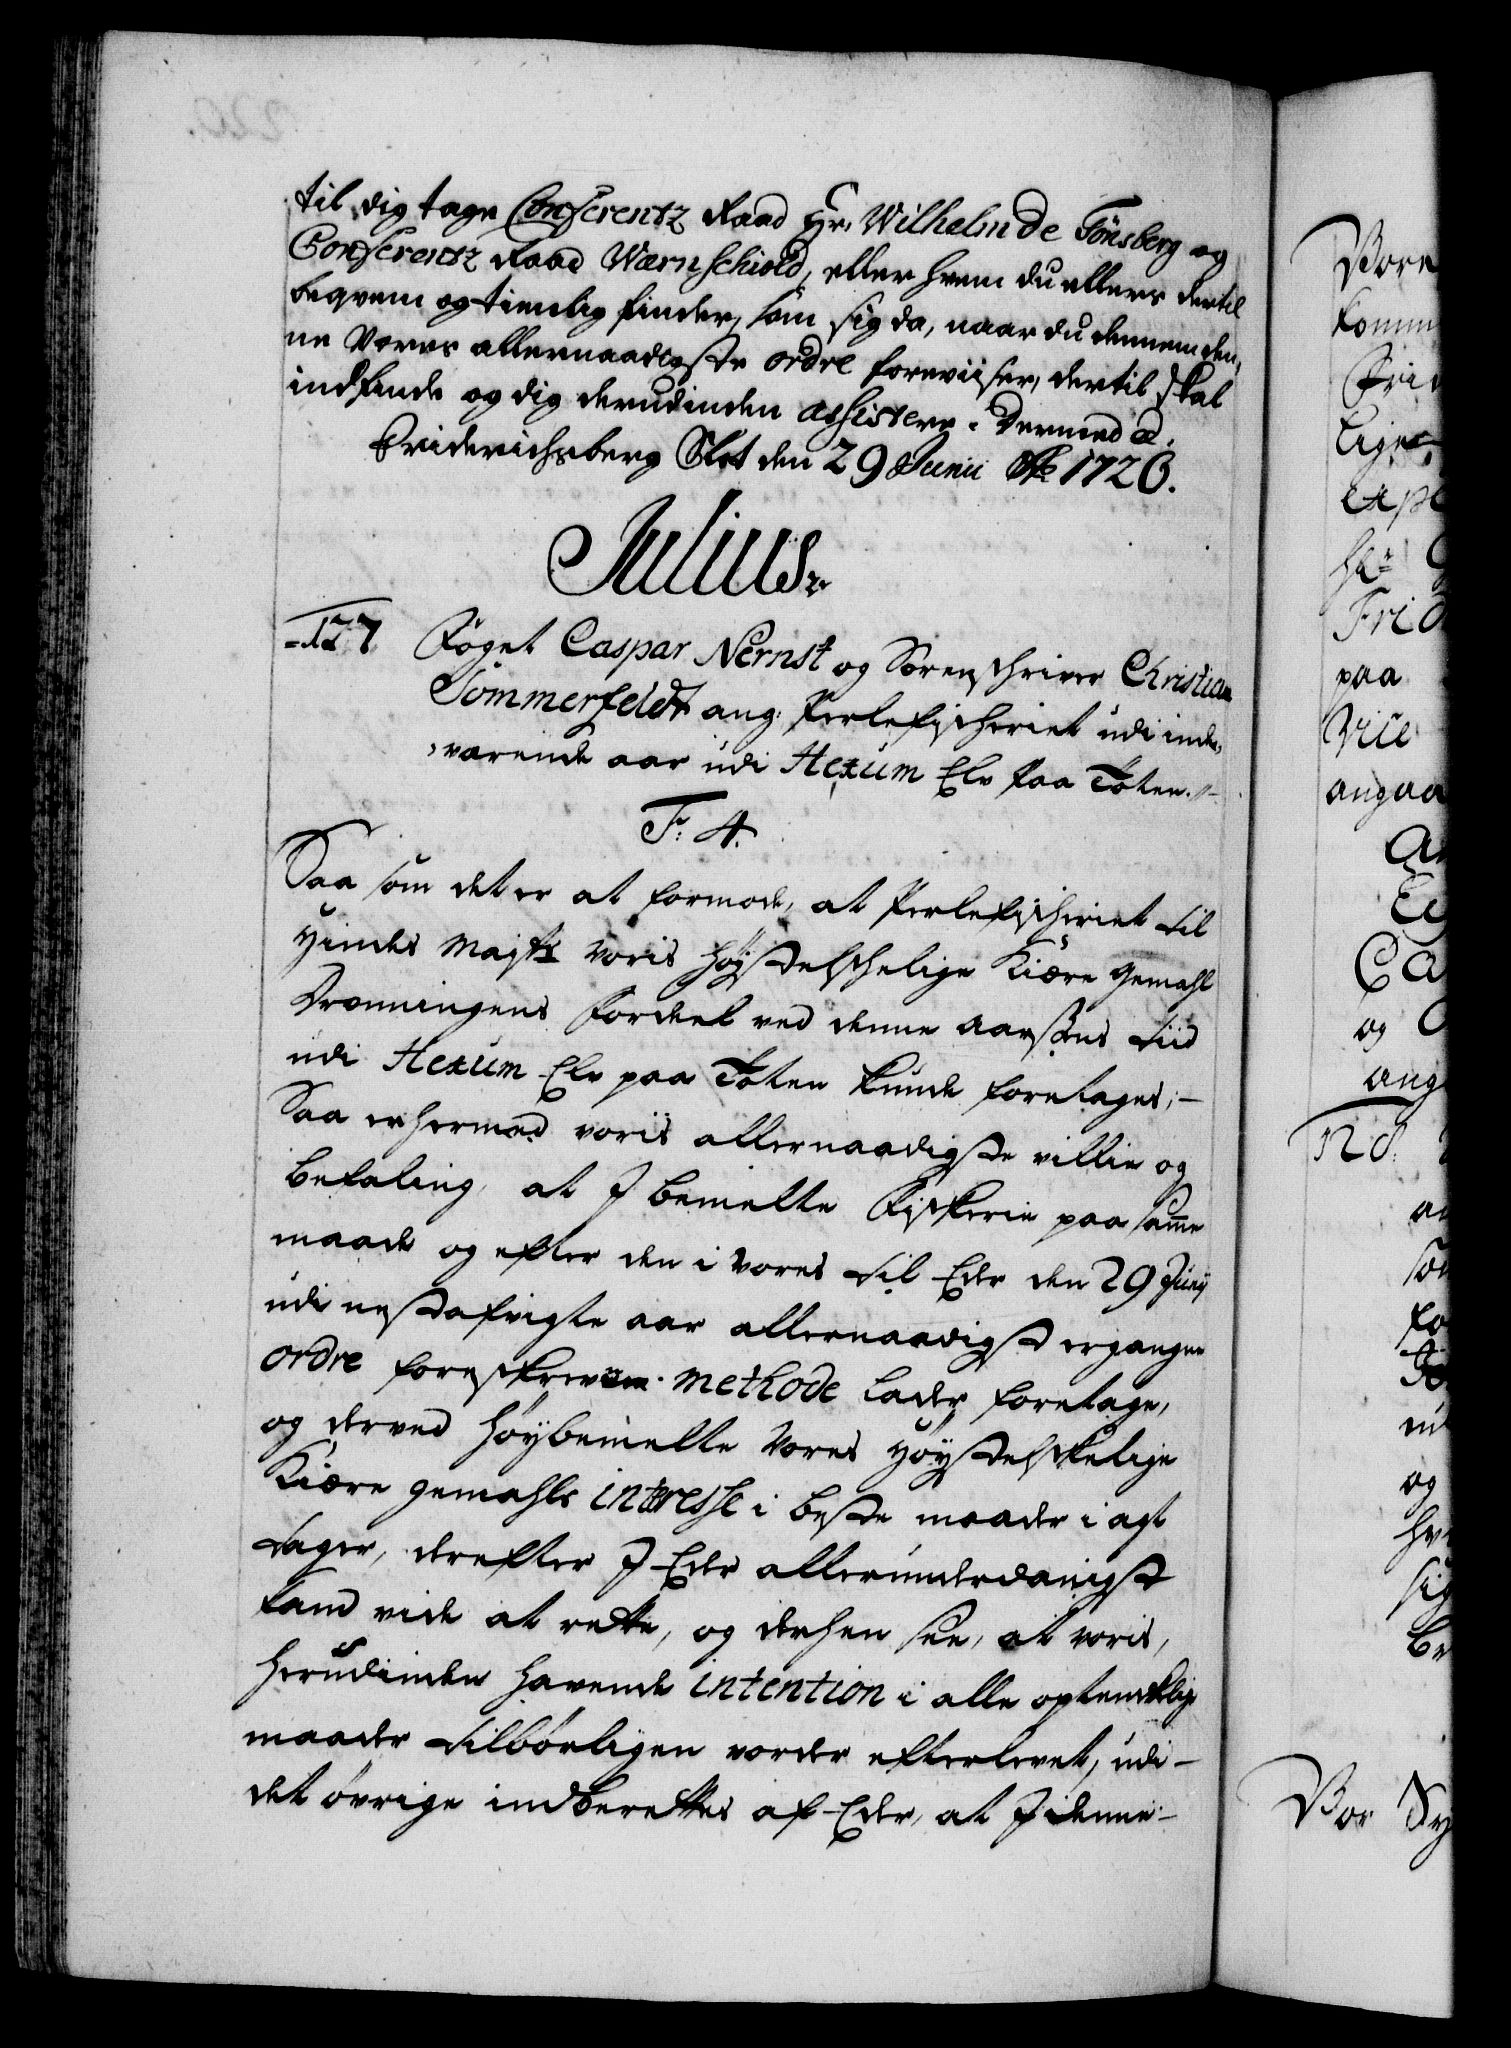 til dig tage Conferentz Raad Hr. Wilhelm de Tønsberg og
Conferentz Raad Wærnschiold, eller hvem du ellers dertil
beqvem og tienlig finder, som sig da, naar du dennem den,
ne Vores allernaadigste ordre foreviiser, dertil skal
indfinde og dig derudinden assistere. Dermed &.
Friderichsberg Slot den 29 Junii Ao 1726.
Julius.
127 Foget Caspar Nernst og Sorenschriver Christian
Sommerfeldt ang: Perlefischeriet udi inde,
værende aar udi Hexum Elv paa Toten.
F. 4.
Saa som det er at formode, at Perlefischeriet til
Hindes Maysts voris Høystelschelige Kiære Gemahl
Dronningens Fordeel ved denne aarsens tiid
udi Hexum Elv paa Toten kunde foretages;
Saa er hermed voris allernaadigste villie og
befaling, at I bemelte Fischerie paa samme
maade og efter den i Vores til Eder den 29 Junij
udi nestafvigte aar allernaadigst ergangne
ordre foreskrevne methode lader foretage,
og derved høybemelte Vores Høystelskelige
Kiære Gemahls interesse i beste maader i agt
tager, derefter I Eder allerunderdanigst
kand vide at rette, og derhen see, at voris,
herudinden havende intention i alle optenckelige
maader tilbørligen vorder efterlevet, udi
det øvrige indberettes af Eder, at I denne
220.
Vore
komm
Frid
lige
paa
Vice
angaa
Ca
og
ang
128.
og
sig
Vor